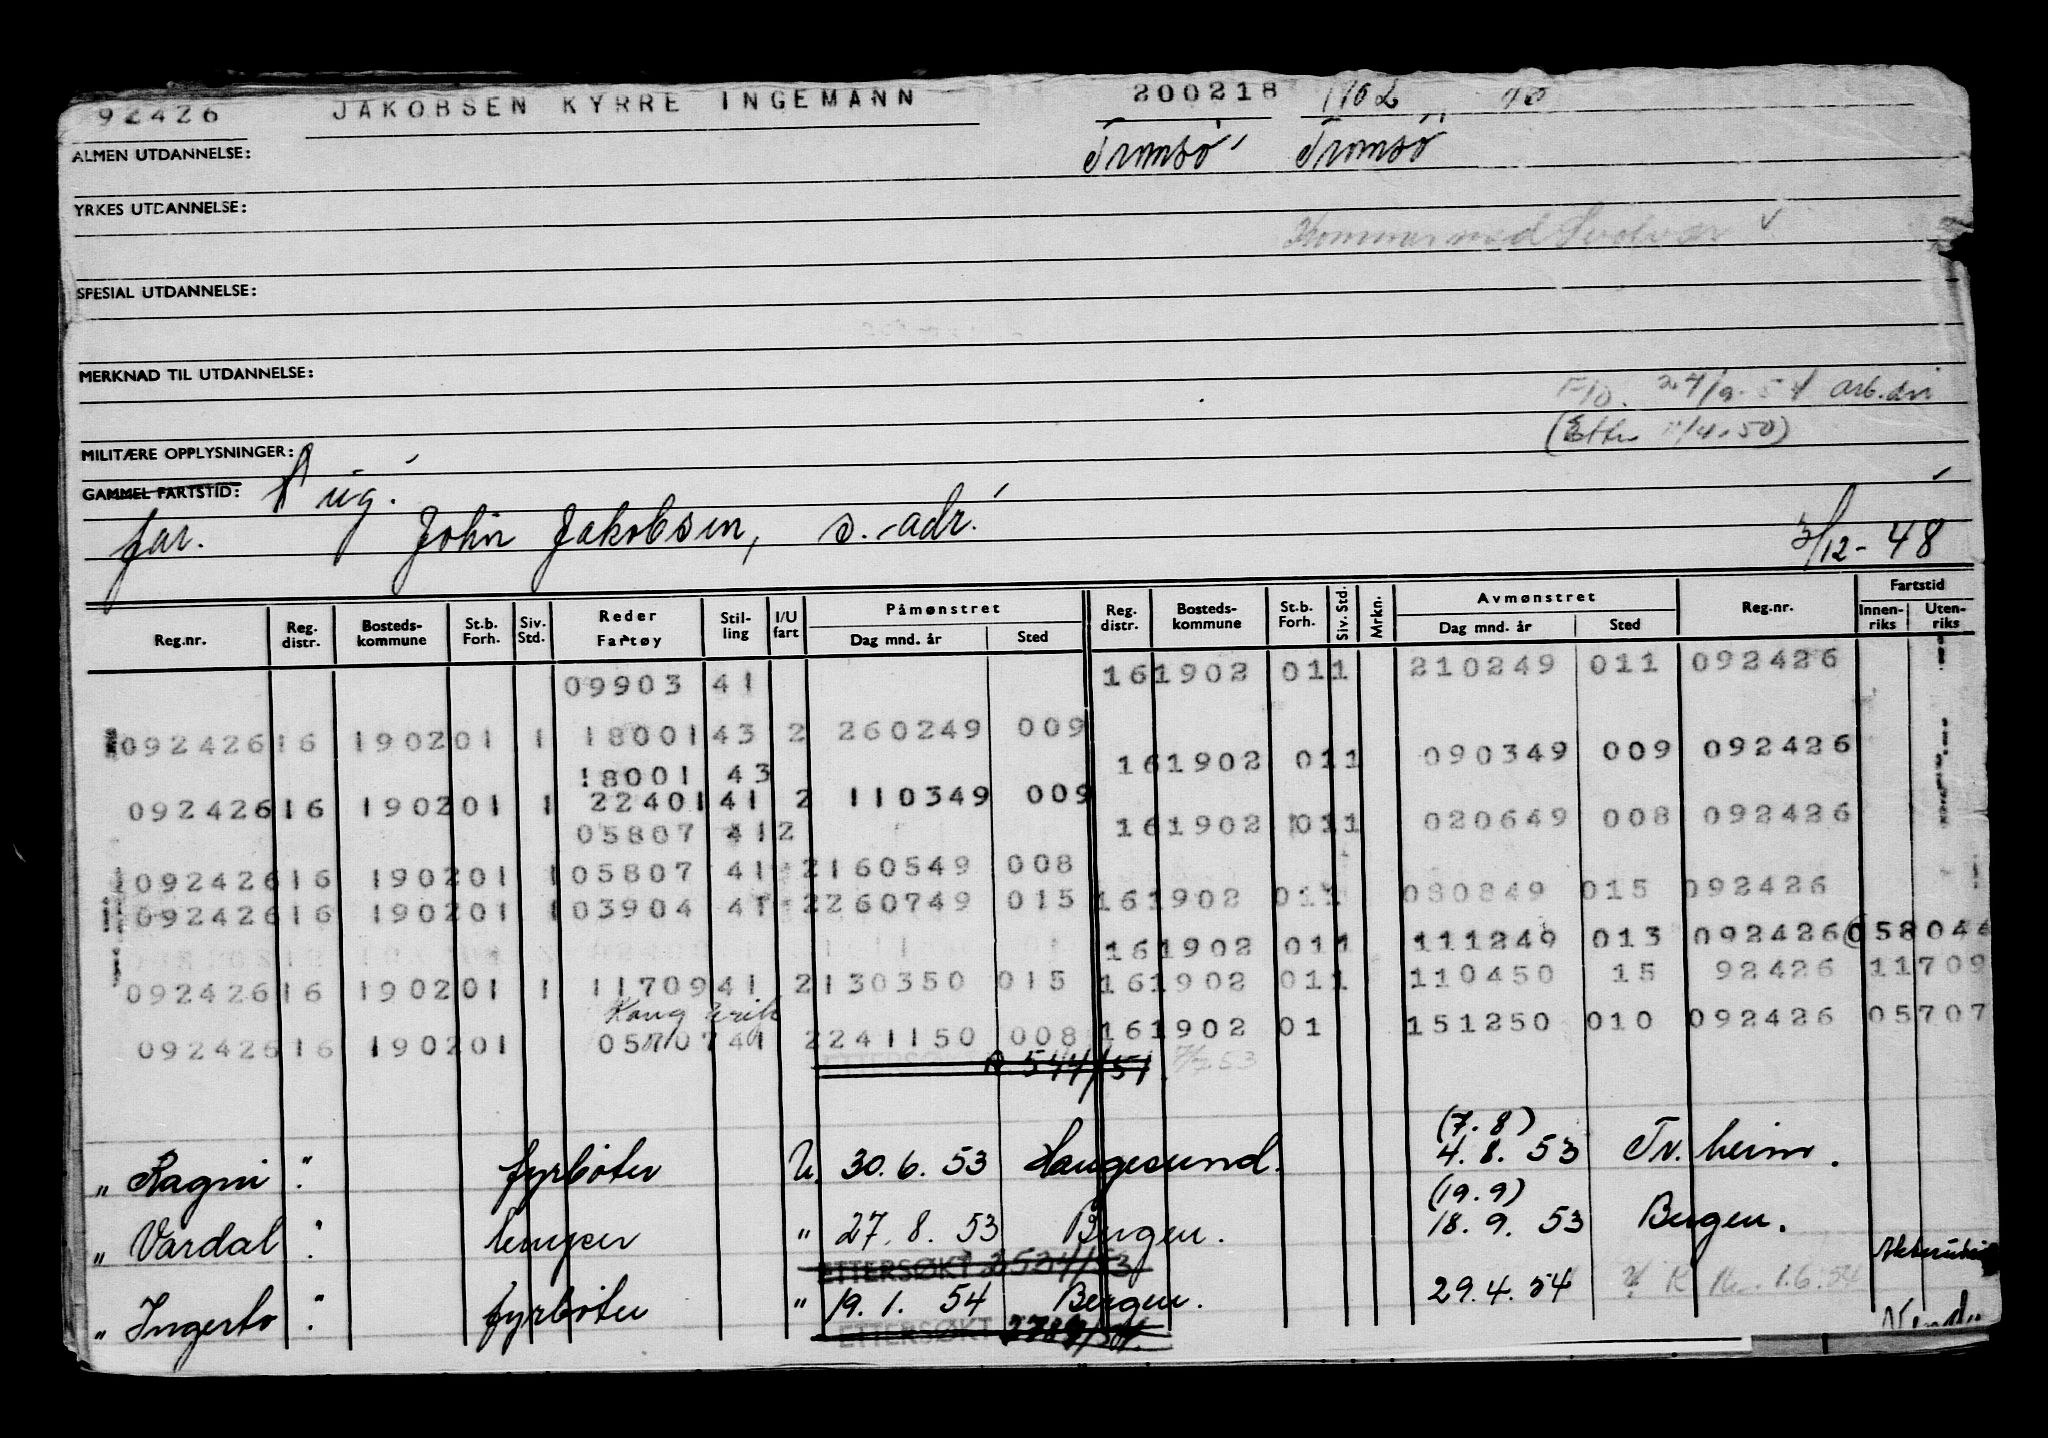 92426 JAKOBSEN KYRRE INGEMANN 200218 1902
ALMEN UTDANNELSE: Tromsö Tromsö
YRKES UTDANNELSE:
Kommer med Svolvær v
SPESIAL UTDANNELSE:
MERKNAD TIL UTDANNELSE:
24/9-54 arb.dir
(Etter 11/4-50)
MILITÆRE OPPLYSNINGER:
GAMMEL FARTSTID: ug.
far. John Jakobsen, s. adr. 3/12-48
Reg.nr. Reg. distr. Bosteds- kommune St.b. Forh. Siv. Std. Reder Fartøy Stil- ling I/U fart Påmønstret Dag mnd. år Sted Reg. distr. Bosteds- kommune St.b. Forh. Siv. Std. Mrkn. Avmønstret Dag mnd. år Sted Reg.nr. Fartstid Innen- riks Uten- riks
09903 41 16 1902 01 1 210249 011 092426
092426 16 1902 01 1 18001 43 2 260249 009
18001 43 16 1902 01 1 090349 009 092426
092426 16 1902 01 1 22401 41 2 110349 009
05807 41 2 16 1902 01 1 020649 008 092426
092426 16 1902 01 1 05807 41 2 160549 008
092426 16 1902 01 1 03904 41 2 260749 015 16 1902 01 1 030849 015 092426
16 1902 01 1 111249 013 092426 058044
092426 16 1902 01 1 11709 41 2 130350 015 16 1902 01 1 110450 15 92426 11709
Kong Erik
092426 16 1902 01 05707 41 2 241150 008 16 1902 01 151250 010 092426 05707
ETTERSØKT 544/51 7/7 53
" Ragni : fyrböter U. 30.6.53 Haugesund. (7.8) 4.8.53 Tr.heim.
" Vardal : lemper " 27.8.53 Bergen. (19.9) 18.9.53 Bergen.
ETTERSØKT 2524/53
" Ingerto : fyrböter " 19.1.54 Bergen. 29.4.54 1.6.54
ETTERSØKT